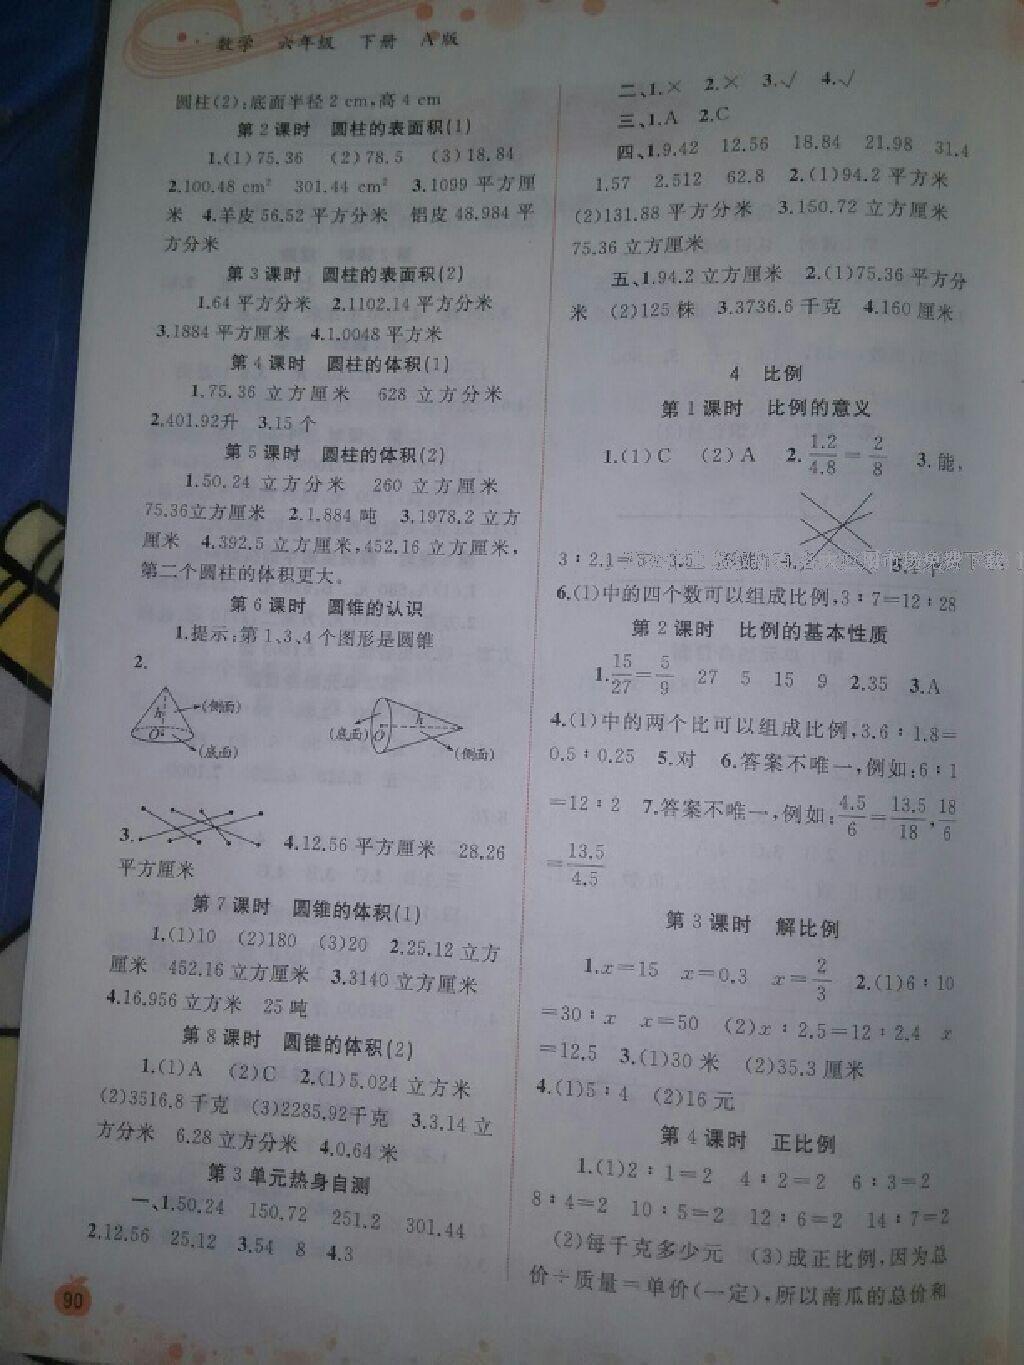 数学 六年级 下册 A版
圆柱(2):底面半径2 cm,高4 cm
第2课时 圆柱的表面积(1)
1.(1)75.36 (2)78.5 (3)18.84
2.100.48 cm² 301.44 cm² 3.1099 平方厘
米 4.羊皮 56.52 平方分米 铝皮 48.984 平
方分米
第3课时 圆柱的表面积(2)
1.64 平方分米 2.1102.14 平方分米
3.1884 平方厘米 4.1.0048 平方米
第4课时 圆柱的体积(1)
1.75.36 立方厘米 628 立方分米
2.401.92升 3.15 个
第5课时 圆柱的体积(2)
1.50.24 立方分米 260 立方厘米
75.36立方厘米 2.1.884 吨 3.1978.2 立方
厘米 4.392.5 立方厘米,452.16 立方厘米,
第二个圆柱的体积更大。
第6课时 圆锥的认识
1.提示:第1、3、4个图形是圆锥
2.
h (侧面) O (底面)
(底面) O h (侧面)
3. 4.12.56 平方厘米 28.26
平方厘米
第7课时 圆锥的体积(1)
1.(1)10 (2)180 (3)20 2.25.12 立方
厘米 452.16 立方厘米 3.3140 立方厘米
4.16.956 立方米 25 吨
第8课时 圆锥的体积(2)
1.(1)A (2)C 2.(1)5.024 立方米
(2)3516.8 千克 (3)2285.92千克 3.3.14 立
方分米 6.28 立方分米 4.0.64 米
第3单元热身自测
一、1.50.24 150.72 251.2 301.44
2.12.56 25.12 3.54 8 4.3
90
二、1.× 2.× 3.√ 4.√
三、1.A 2.C
四、1.9.42 12.56 18.84 21.98 31.4
1.57 2.512 62.8 2.(1)94.2 平方米
(2)131.88 平方分米 3.150.72 立方厘米
75.36 立方厘米
五、1.94.2 立方厘米 2.(1)75.36 平方分
米 (2)125 株 3.3736.6 千克 4.160 厘米
4 比例
第1课时 比例的意义
1.(1)C (2)A 2. 1.2/4.8 = 2/8 3.能,
3∶2.1=5∶3.5
6.(1)中的四个数可以组成比例,3∶7=12∶28
第2课时 比例的基本性质
1. 15/27 = 5/9 27 5 15 9 2.35 3.A
4.(1)中的两个比可以组成比例,3.6∶1.8=
0.5∶0.25 5.对 6.答案不唯一,例如:6∶1
=12∶2 7.答案不唯一,例如: 4.5/6 = 13.5/18, 18/6
= 13.5/4.5
第3课时 解比例
1.x=15 x=0.3 x= 2/3 2.(1)6∶10
=30∶x x=50 (2)x∶2.5=12∶2.4 x
=12.5 3.(1)30 米 (2)35.3 厘米
4.(1)5∶4 (2)16 元
第4课时 正比例
1.(1)2∶1=2 4∶2=2 6∶3=2
8∶4=2 10∶5=2 12∶6=2 14∶7=2
(2)每千克多少元 (3)成正比例,因为总
价÷质量=单价(一定),所以南瓜的总价和